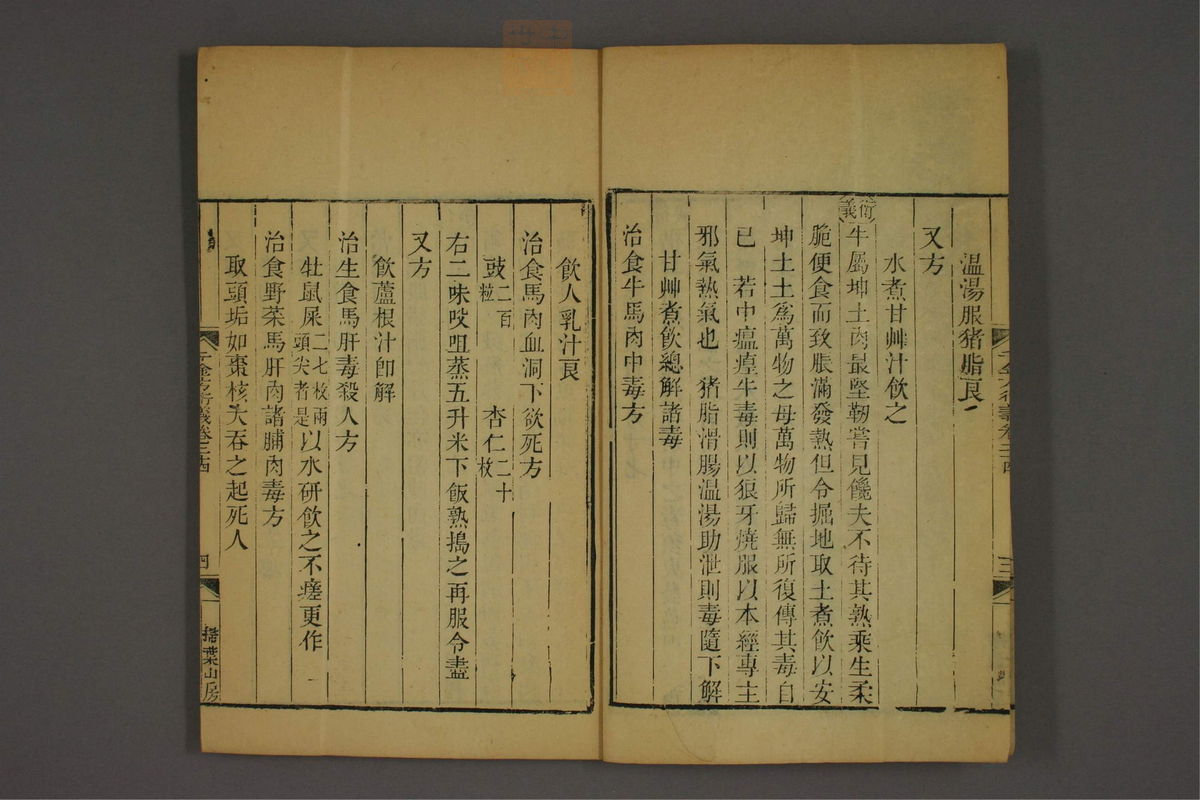 溫湯服猪脂良
又方
水煮甘艸汁飲之
衍義 牛屬坤土肉最堅韌嘗見饞夫不待其熟乘生柔
脆便食而致脹滿發熱但令掘地取土煮飲以安
坤土土爲萬物之母萬物所歸無所復傳其毒自
已 若中瘟瘴牛毒則以狼牙燒服以本經專主
邪氣熱氣也 猪脂滑腸溫湯助泄則毒隨下解
甘艸煮飲總解諸毒
治食牛馬肉中毒方
飲人乳汁良
治食馬肉血洞下欲死方
豉二百粒 杏仁二十枚
右二味㕮咀蒸五升米下飯熟搗之再服令盡
又方
飲蘆根汁卽解
治生食馬肝毒殺人方
牡鼠屎二七枚兩頭尖者是以水研飲之不瘥更作
治食野菜馬肝肉諸脯肉毒方
取頭垢如棗核大吞之起死人
千金方衍義卷二十四
三
四
掃葉山房